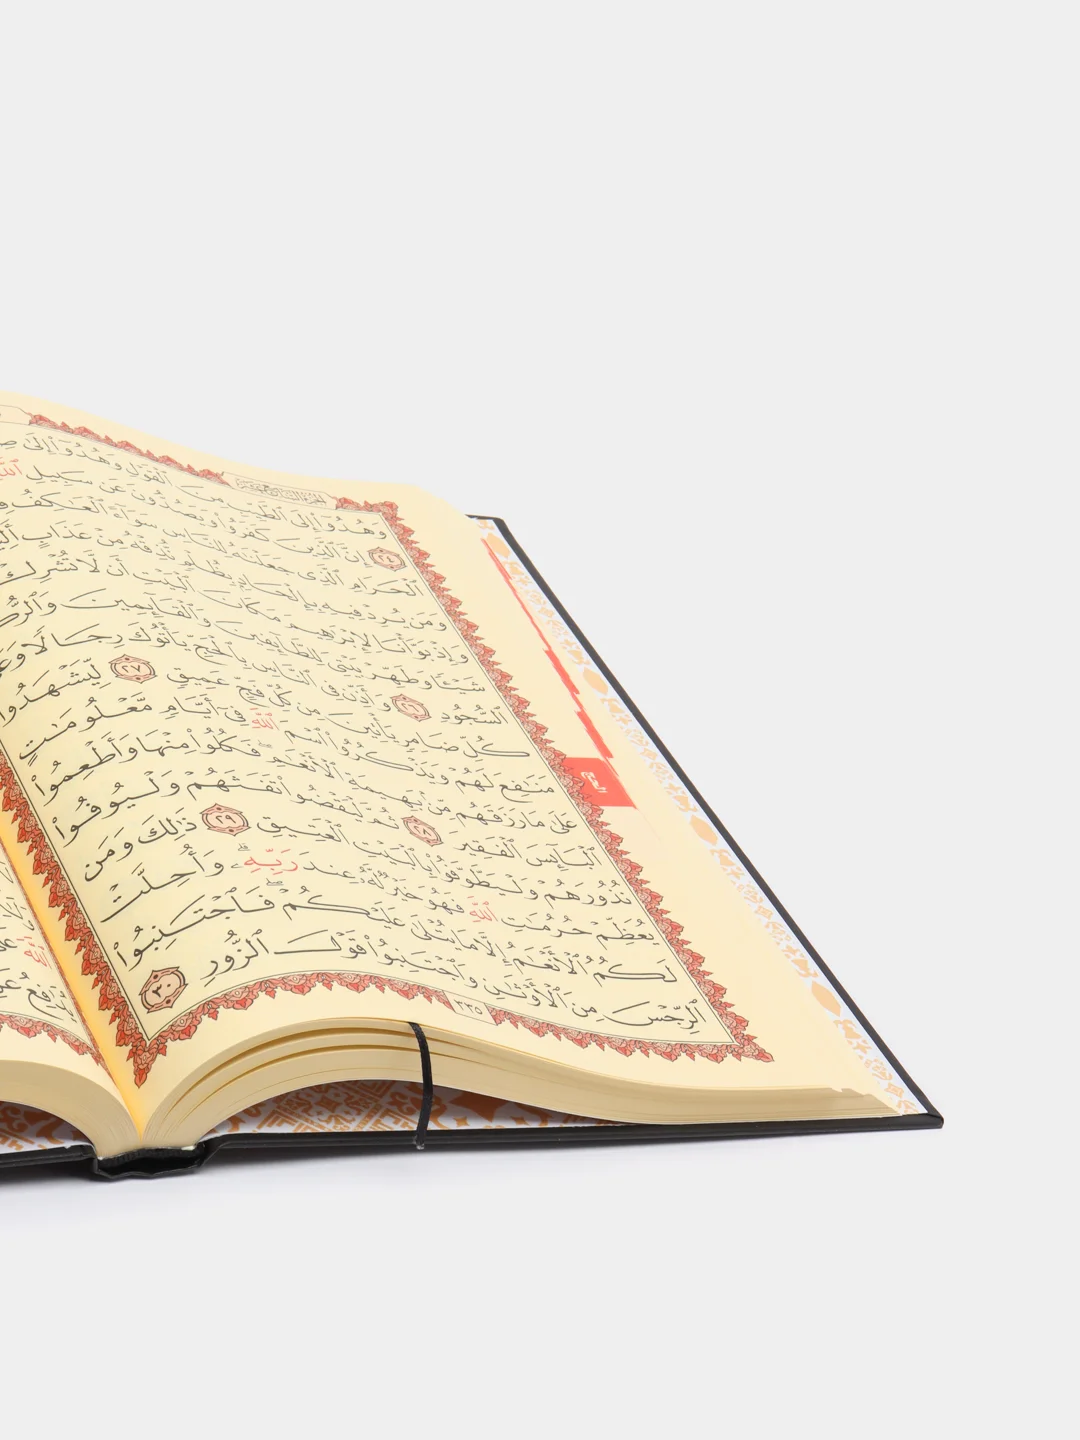 الحج
وَهُدُوٓاْ إِلَى ٱلطَّيِّبِ مِنَ ٱلۡقَوۡلِ وَهُدُوٓاْ إِلَىٰ
٢٤ إِنَّ ٱلَّذِينَ كَفَرُواْ وَيَصُدُّونَ عَن سَبِيلِ ٱللَّهِ
ٱلۡحَرَامِ ٱلَّذِي جَعَلۡنَٰهُ لِلنَّاسِ سَوَآءً ٱلۡعَٰكِفُ
وَمَن يُرِدۡ فِيهِ بِإِلۡحَادِۭ بِظُلۡمٖ نُّذِقۡهُ مِنۡ عَذَابٍ
وَإِذۡ بَوَّأۡنَا لِإِبۡرَٰهِيمَ مَكَانَ ٱلۡبَيۡتِ أَن لَّا تُشۡرِكۡ
شَيۡـٔٗا وَطَهِّرۡ بَيۡتِيَ لِلطَّآئِفِينَ وَٱلۡقَآئِمِينَ
ٱلسُّجُودِ ٢٦ وَأَذِّن فِي ٱلنَّاسِ بِٱلۡحَجِّ يَأۡتُوكَ رِجَالٗا
كُلِّ ضَامِرٖ يَأۡتِينَ مِن كُلِّ فَجٍّ عَمِيقٖ ٢٧ لِّيَشۡهَدُواْ
مَنَٰفِعَ لَهُمۡ وَيَذۡكُرُواْ ٱسۡمَ ٱللَّهِ فِيٓ أَيَّامٖ مَّعۡلُومَٰتٍ
عَلَىٰ مَا رَزَقَهُم مِّنۢ بَهِيمَةِ ٱلۡأَنۡعَٰمِۖ فَكُلُواْ مِنۡهَا وَأَطۡعِمُواْ
ٱلۡبَآئِسَ ٱلۡفَقِيرَ ٢٨ ثُمَّ لۡيَقۡضُواْ تَفَثَهُمۡ وَلۡيُوفُواْ
نُذُورَهُمۡ وَلۡيَطَّوَّفُواْ بِٱلۡبَيۡتِ ٱلۡعَتِيقِ ٢٩ ذَٰلِكَۖ وَمَن
يُعَظِّمۡ حُرُمَٰتِ ٱللَّهِ فَهُوَ خَيۡرٞ لَّهُۥ عِندَ رَبِّهِۦۗ وَأُحِلَّتۡ
لَكُمُ ٱلۡأَنۡعَٰمُ إِلَّا مَا يُتۡلَىٰ عَلَيۡكُمۡۖ فَٱجۡتَنِبُواْ
ٱلرِّجۡسَ مِنَ ٱلۡأَوۡثَٰنِ وَٱجۡتَنِبُواْ قَوۡلَ ٱلزُّورِ ٣٠
٣٣٥